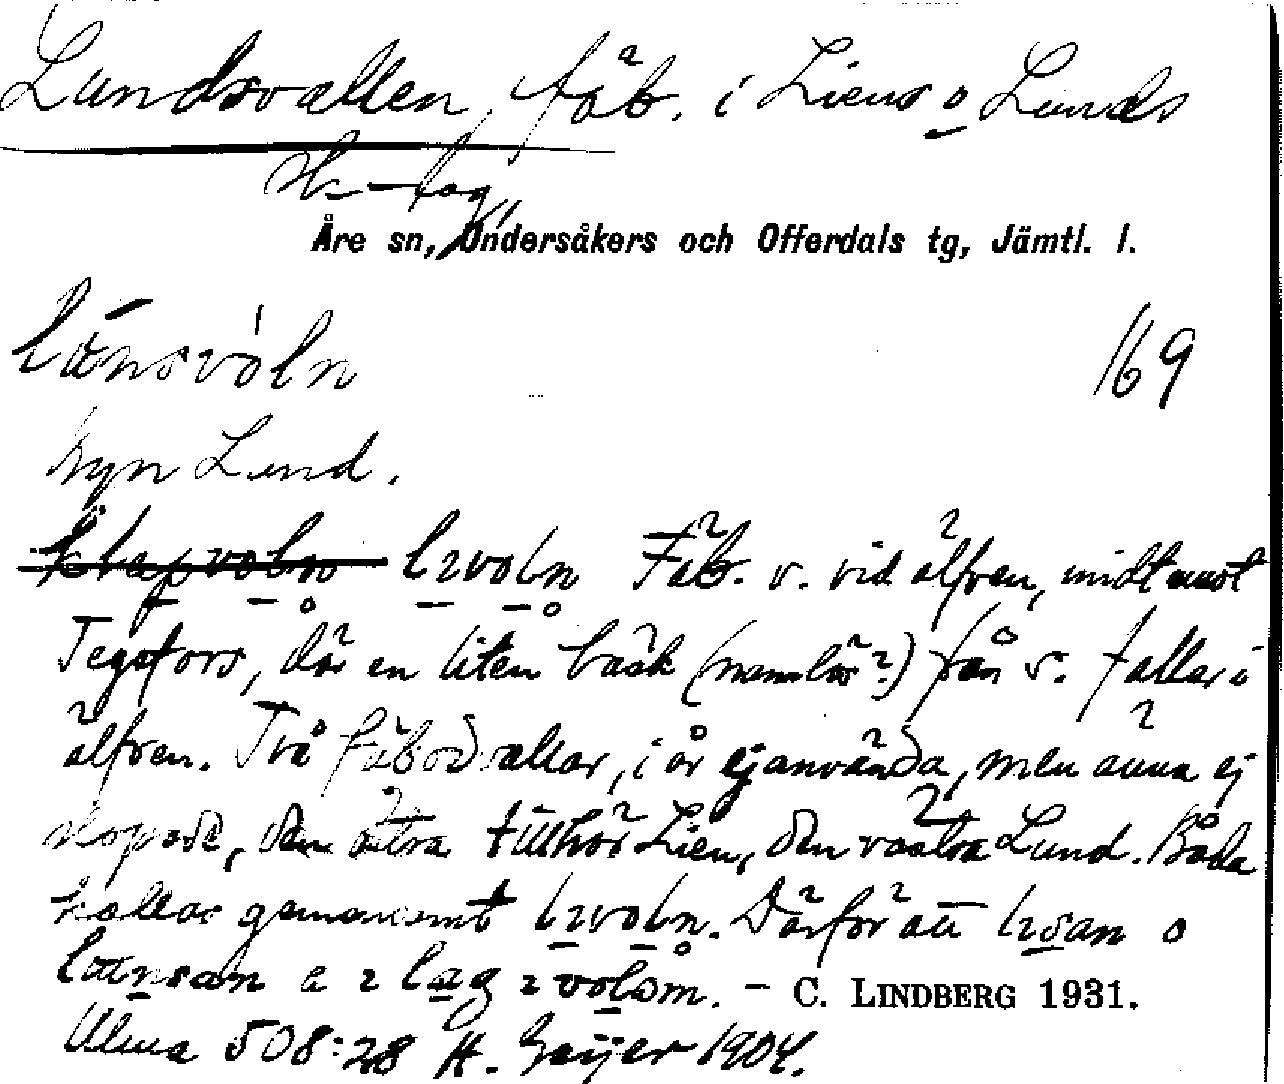 Lundsvallen, fäb. i Liens o Lunds
Sk-lag,
Åre sn, Undersåkers och Offerdals tg, Jämtl. l.
169
byn Lund.
Fäb. v. vid älfven, midt emot
Tegefors, där en liten bäck (namnlös?) från v. faller i
älfven. Två fäbodvallar, i år ej använda, men ännu ej
slopade, den östra tillhör Lien, den västra Lund. Båda
kallas gemensamt lıvoln. Därför att
C. LINDBERG 1931.
Ulma 508:28 H. Geijer 1904.